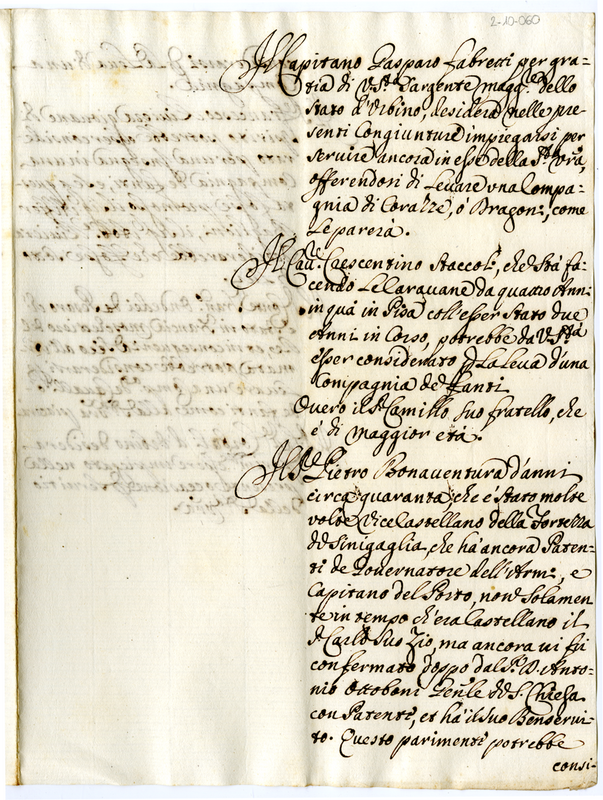 2-10-060
Il Capitano Gasparo Fabretti per gra-
tia di V. S.ta Sargente magg.e dello
Stato d'Urbino, desidera nelle pre-
senti Congiunture impiegarsi per
servire ancora in esse della S.tà Vra,
offerendosi di Levare una Compa-
gnia di Corazze, ò Dragoni, come
Le parerà.
Il Cau.re Crescentino Staccoli, che stà fa-
cendo Le Caravane da quattro Anni
in quà in Pisa coll'esser stato due
Anni in Corso, potrebbe da V. S.tà
esser considerato p La Leva d'una
Compagnia de Fanti
Overo il S.r Camillo suo fratello, che
è di maggior età.
Il S.re Pietro Bonaventura d'anni
circa quaranta, che è stato molte
volte Vice Castellano della Fortezza
di Sinigaglia, che hà ancora Paten-
ti de Governatore dell'Armi, e
Capitano del Porto, non solamen-
te in tempo ch'era Castellano il
S.r Carlo suo Zio, ma ancora vi fù
confermato doppo dal S.r D. Anto-
nio Ottoboni Gen.le di S. Chiesa
con Patenti, et hà il suo Benservi-
to. Questo parimenti potrebbe
consi-